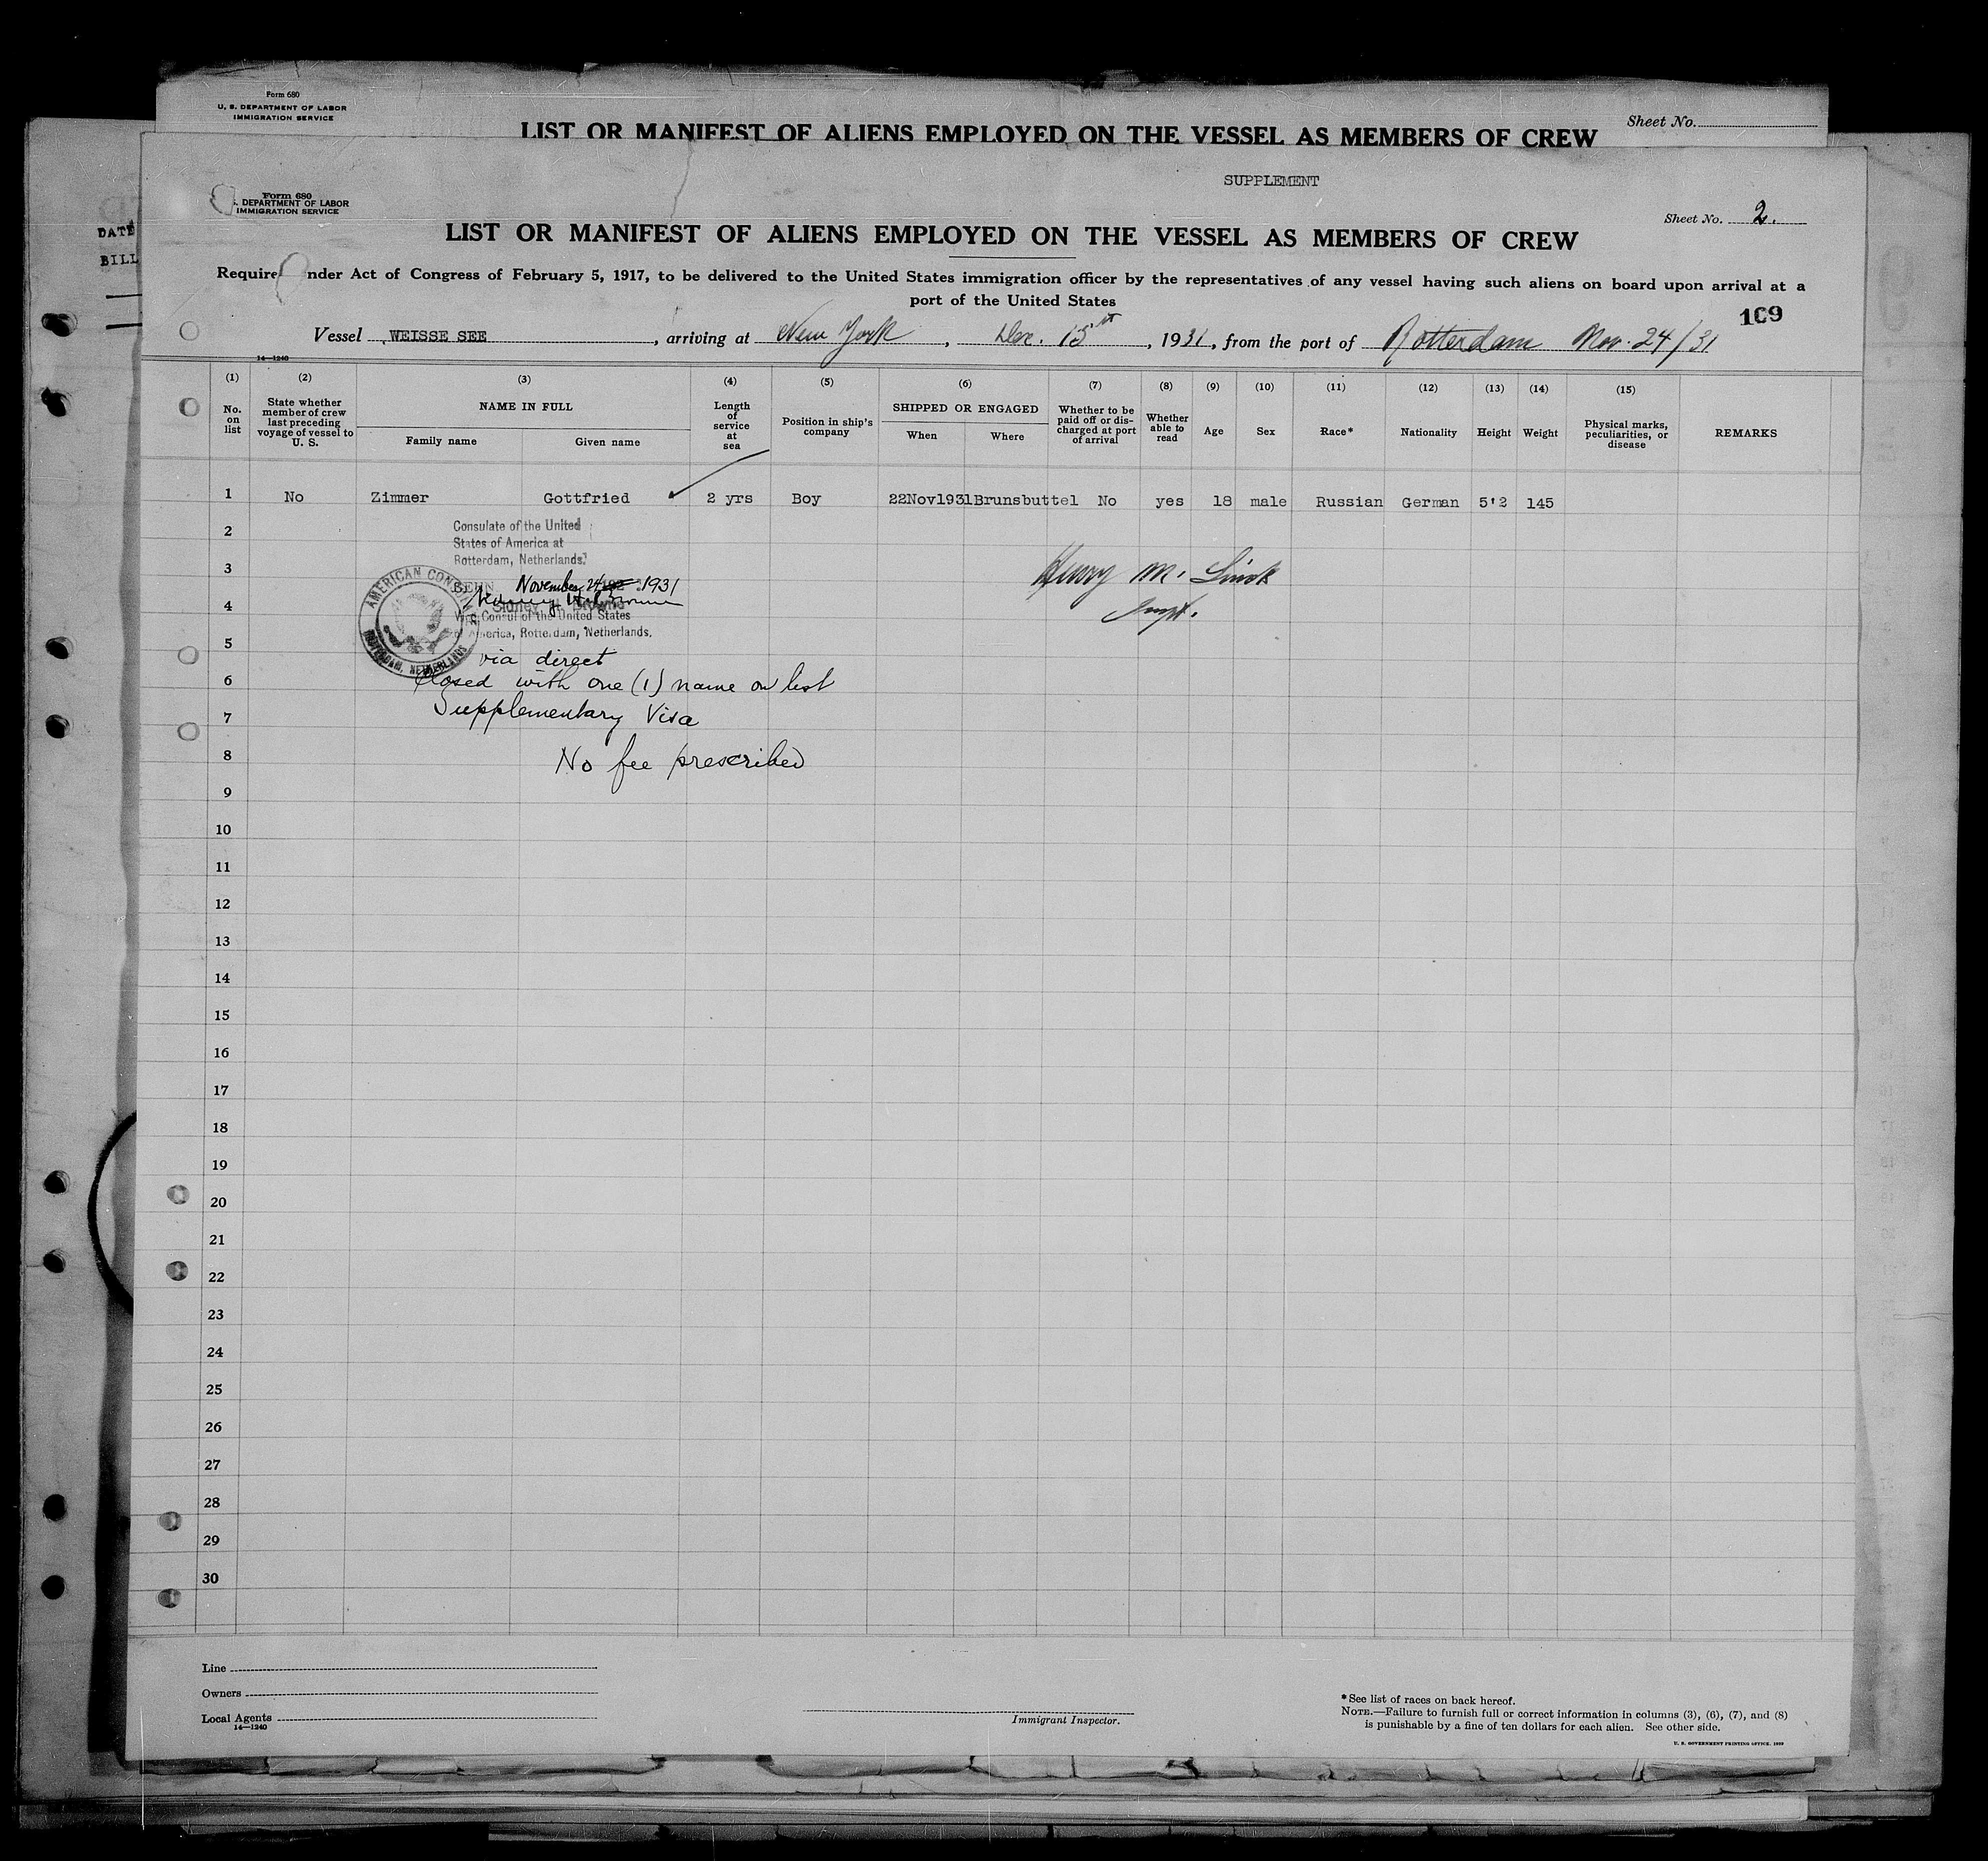 Form 680
U. S. DEPARTMENT OF LABOR
IMMIGRATION SERVICE
LIST OR MANIFEST OF ALIENS EMPLOYED ON THE VESSEL AS MEMBERS OF CREW
Sheet No.
SUPPLEMENT
Form 680
. DEPARTMENT OF LABOR
IMMIGRATION SERVICE
Sheet No. 2.
DATE
BILL
LIST OR MANIFEST OF ALIENS EMPLOYED ON THE VESSEL AS MEMBERS OF CREW
Require nder Act of Congress of February 5, 1917, to be delivered to the United States immigration officer by the representatives of any vessel having such aliens on board upon arrival at a
port of the United States
109
Vessel WEISSE SEE, arriving at New York, Dec. 15, 1931, from the port of Rotterdam Nov. 24/31
14—1240
(1) (2) (3) (4) (5) (6) (7) (8) (9) (10) (11) (12) (13) (14) (15)
No. on list
State whether member of crew last preceding voyage of vessel to U. S.
NAME IN FULL
Family name Given name
Length of service at sea
Position in ship's company
SHIPPED OR ENGAGED
When Where
Whether to be paid off or discharged at port of arrival
Whether able to read
Age
Sex
Race*
Nationality
Height
Weight
Physical marks, peculiarities, or disease
REMARKS
1 No Zimmer Gottfried 2 yrs Boy 22Nov1931 Brunsbuttel No yes 18 male Russian German 5'2 145
2
Consulate of the United
States of America at
Rotterdam, Netherlands.
3
SEEN November 24 1931
Henry M.
4
AMERICAN CONSULATE
ROTTERDAM, NETHERLANDS
Sidney H. Browne
Vice Consul of the United States
of America, Rotterdam, Netherlands.
5
via direct
6
Closed with one (1) name on list
Supplementary Visa
7
8
No fee prescribed
9
10
11
12
13
14
15
16
17
18
19
20
21
22
23
24
25
26
27
28
29
30
Line
Owners
Local Agents
14—1240
Immigrant Inspector.
*See list of races on back hereof.
NOTE.—Failure to furnish full or correct information in columns (3), (6), (7), and (8)
is punishable by a fine of ten dollars for each alien. See other side.
U. S. GOVERNMENT PRINTING OFFICE: 1929